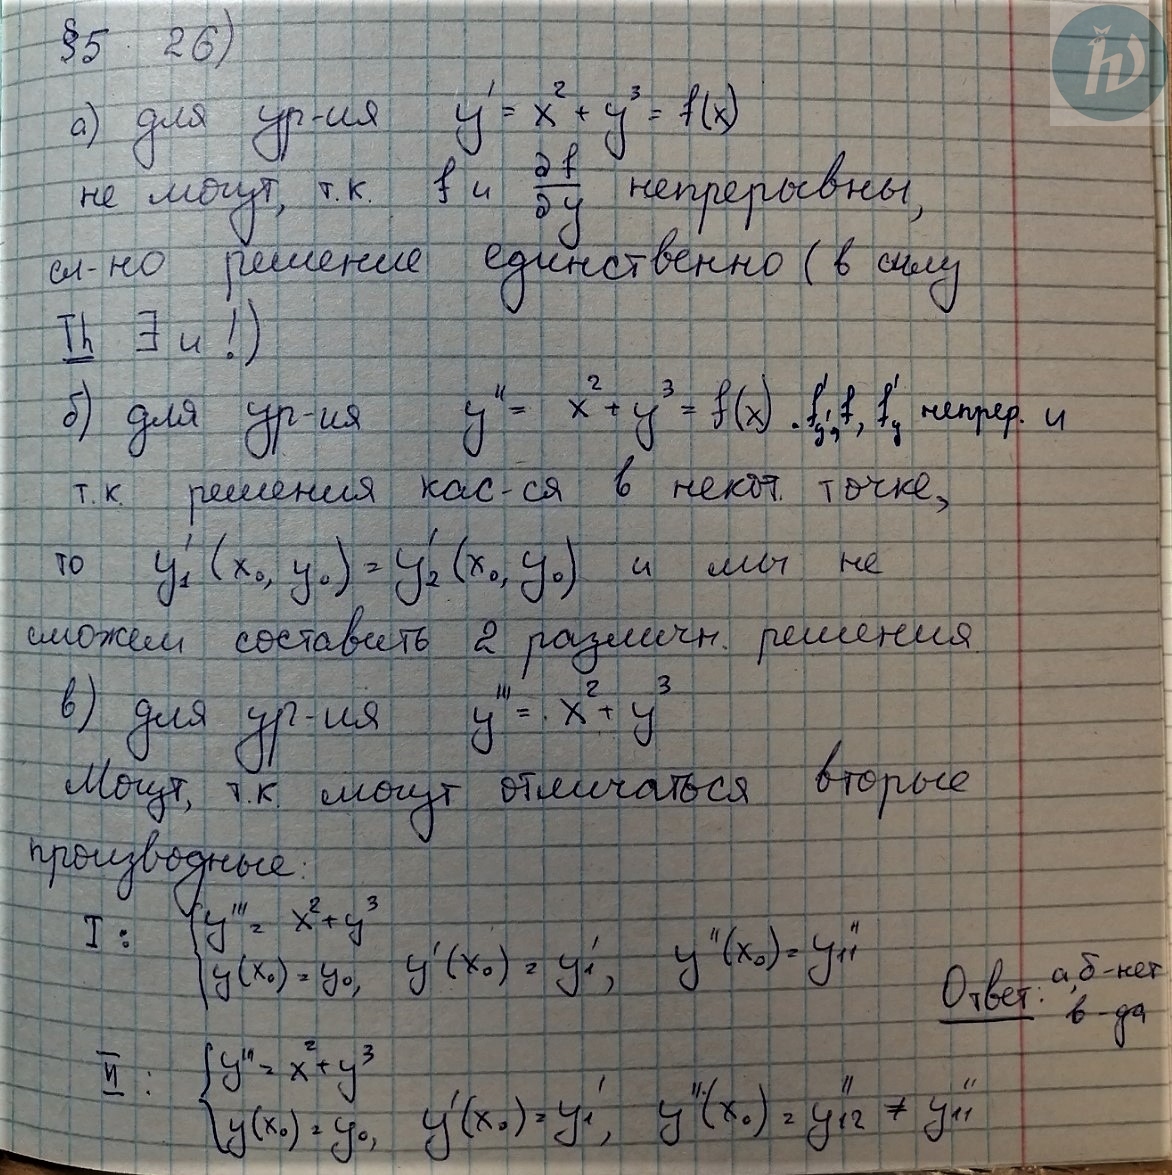 §5 26)
а) для ур-ия y' = x² + y³ = f(x)
не могут, т.к. f и ∂f/∂y непрерывны,
сл-но решение единственно (в силу
Th ∃ и !)
б) для ур-ия y'' = x² + y³ = f(x). f'y', f, f'y непрер. и
т.к. решения кас-ся в некот. точке,
то y₁'(x₀, y₀) = y₂'(x₀, y₀) и мы не
сможем составить 2 различн. решения
в) для ур-ия y''' = x² + y³
Могут, т.к. могут отличаться вторые
производные:
I: { y''' = x² + y³
y(x₀) = y₀, y'(x₀) = y₁', y''(x₀) = y₁₁''
Ответ: а,б-нет
в-да
II: { y''' = x² + y³
y(x₀) = y₀, y'(x₀) = y₁', y''(x₀) = y₁₂'' ≠ y₁₁''